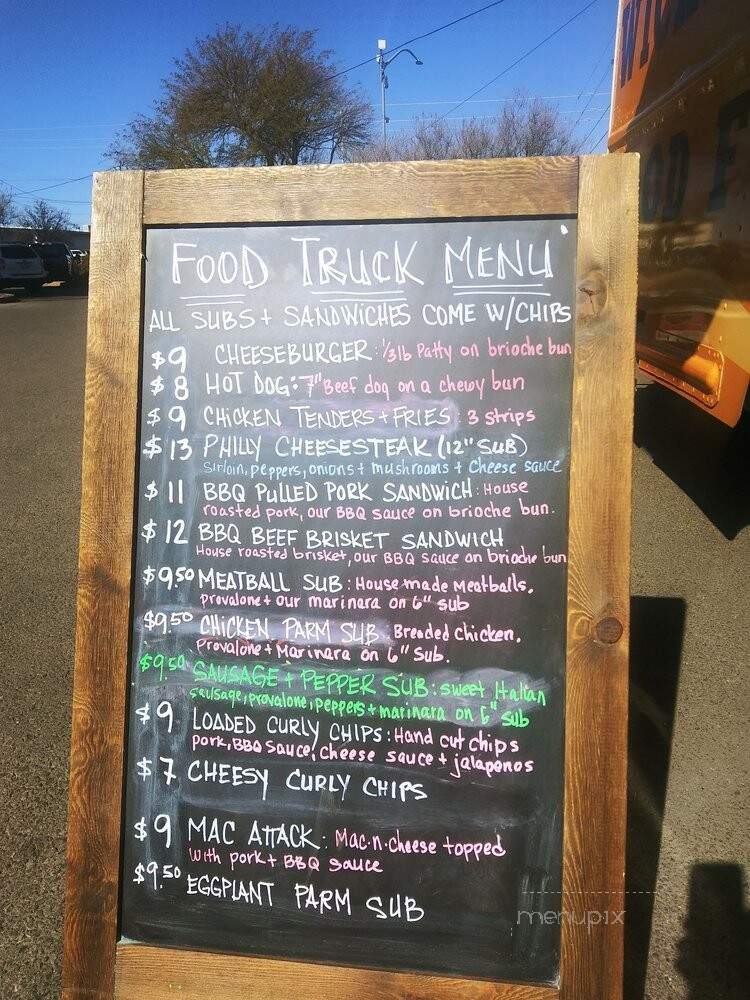 FOOD TRUCK MENU
ALL SUBS + SANDWICHES COME W/CHIPS
$9 CHEESEBURGER: 1/3lb Patty on brioche bun
$8 HOT DOG: 7" Beef dog on a chewy bun
$9 CHICKEN TENDERS + FRIES: 3 strips
$13 PHILLY CHEESESTEAK (12" SUB)
Sirloin, peppers, onions + mushrooms + Cheese sauce
$11 BBQ PULLED PORK SANDWICH: House
roasted pork, our BBQ sauce on brioche bun.
$12 BBQ BEEF BRISKET SANDWICH
House roasted brisket, our BBQ sauce on brioche bun
$9.50 MEATBALL SUB: House made Meatballs,
provalone + our marinara on 6" sub
$9.50 CHICKEN PARM SUB: Breaded Chicken,
Provalone + Marinara on 6" Sub.
$9.50 SAUSAGE + PEPPER SUB: sweet Italian
sausage, provalone, peppers + marinara on 6" sub
$9 LOADED CURLY CHIPS: Hand cut chips
pork, BBQ sauce, cheese sauce + jalapenos
$7 CHEESY CURLY CHIPS
$9 MAC ATTACK: Mac-n-cheese topped
with pork + BBQ sauce
$9.50 EGGPLANT PARM SUB
menupix